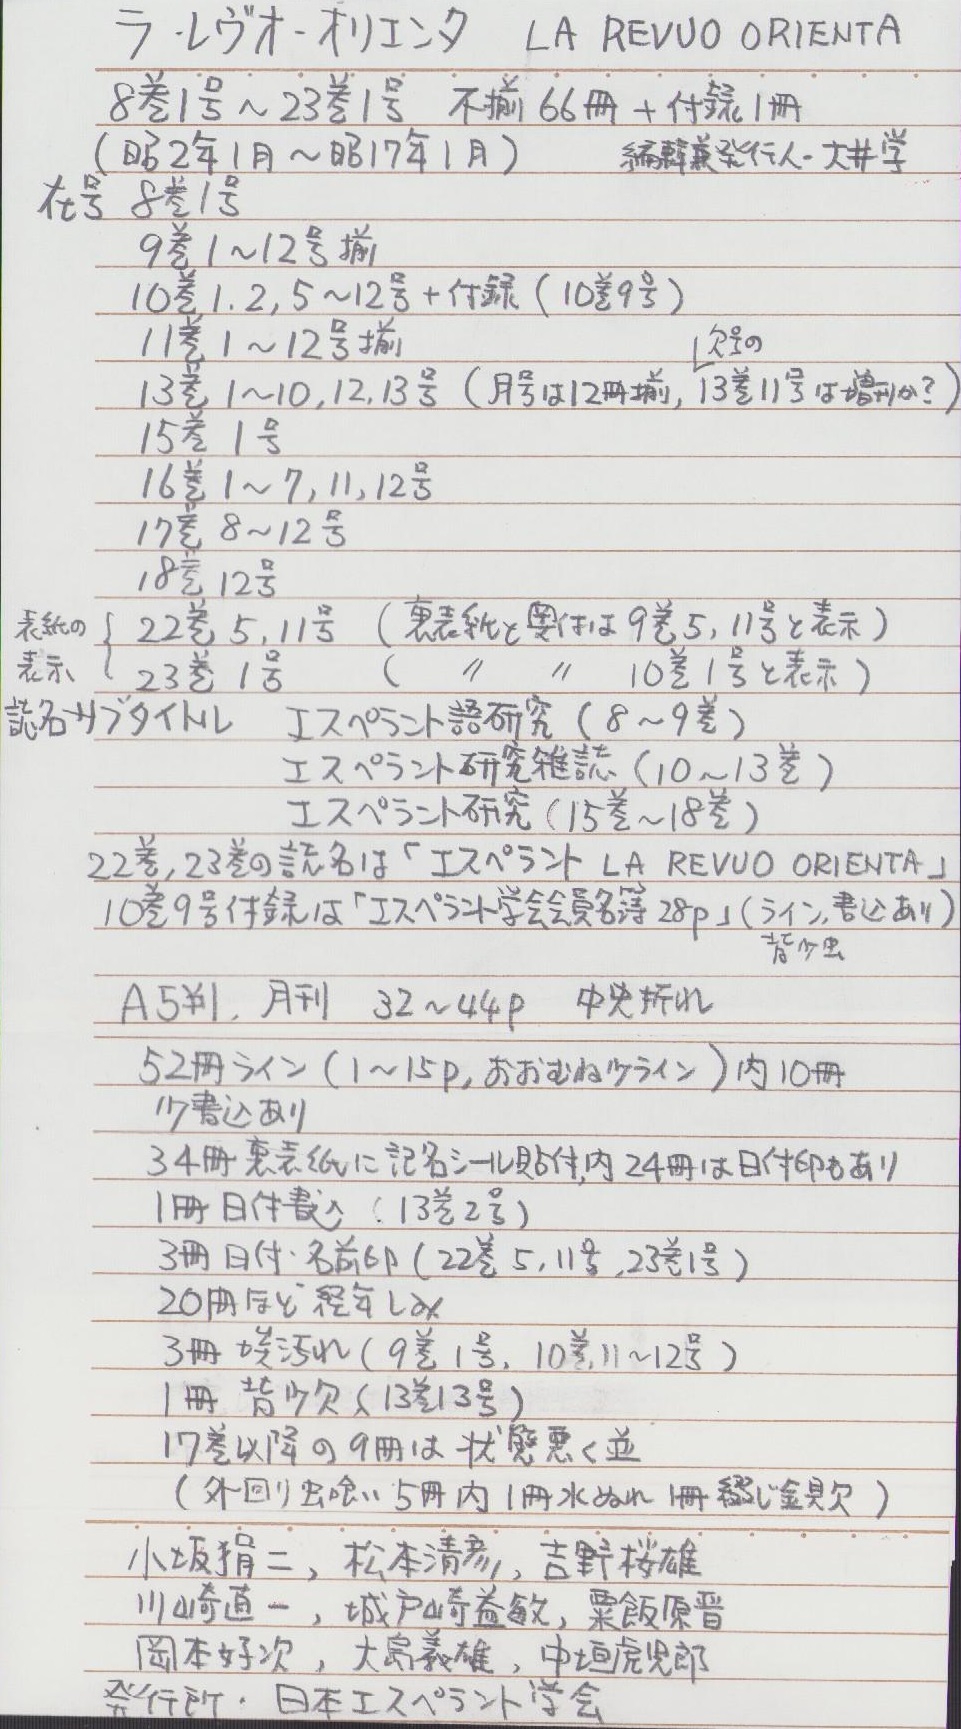 ラ・レヴオ・オリエンタ LA REVUO ORIENTA
8巻1号～23巻1号 不揃66冊+付録1冊
(昭2年1月～昭17年1月) 編輯兼発行人・大井学
在号 8巻1号
9巻1～12号揃
10巻1.2,5～12号+付録(10巻9号)
11巻1～12号揃
欠号の
13巻1～10,12,13号(月号は12冊揃,13巻11号は増刊か?)
15巻1号
16巻1～7,11,12号
17巻8～12号
18巻12号
表紙の表示 22巻5,11号 (裏表紙と奥付は9巻5,11号と表示)
23巻1号 ( 〃 〃 10巻1号と表示)
誌名サブタイトル エスペラント語研究(8～9巻)
エスペラント研究雑誌(10～13巻)
エスペラント研究(15巻～18巻)
22巻,23巻の誌名は「エスペラント LA REVUO ORIENTA」
10巻9号付録は「エスペラント学会会員名簿28p」(ライン,書込あり)
背少虫
A5判. 月刊 32～44p 中央折れ
52冊ライン(1～15p,おおむね少ライン)内10冊
少書込あり
34冊裏表紙に記名シール貼付,内24冊は日付印もあり
1冊日付書込(13巻2号)
3冊日付・名前印(22巻5,11号,23巻1号)
20冊ほど経年しみ
3冊埃汚れ(9巻1号,10巻11～12号)
1冊背少欠(13巻13号)
17巻以降の9冊は状態悪く並
(外回り虫喰い5冊内1冊水ぬれ 1冊綴じ金具欠)
小坂狷二,松本清彦,吉野桜雄
川崎直一,城戸崎益敏,粟飯原晋
岡本好次,大島義雄,中垣虎児郎
発行所・日本エスペラント学会